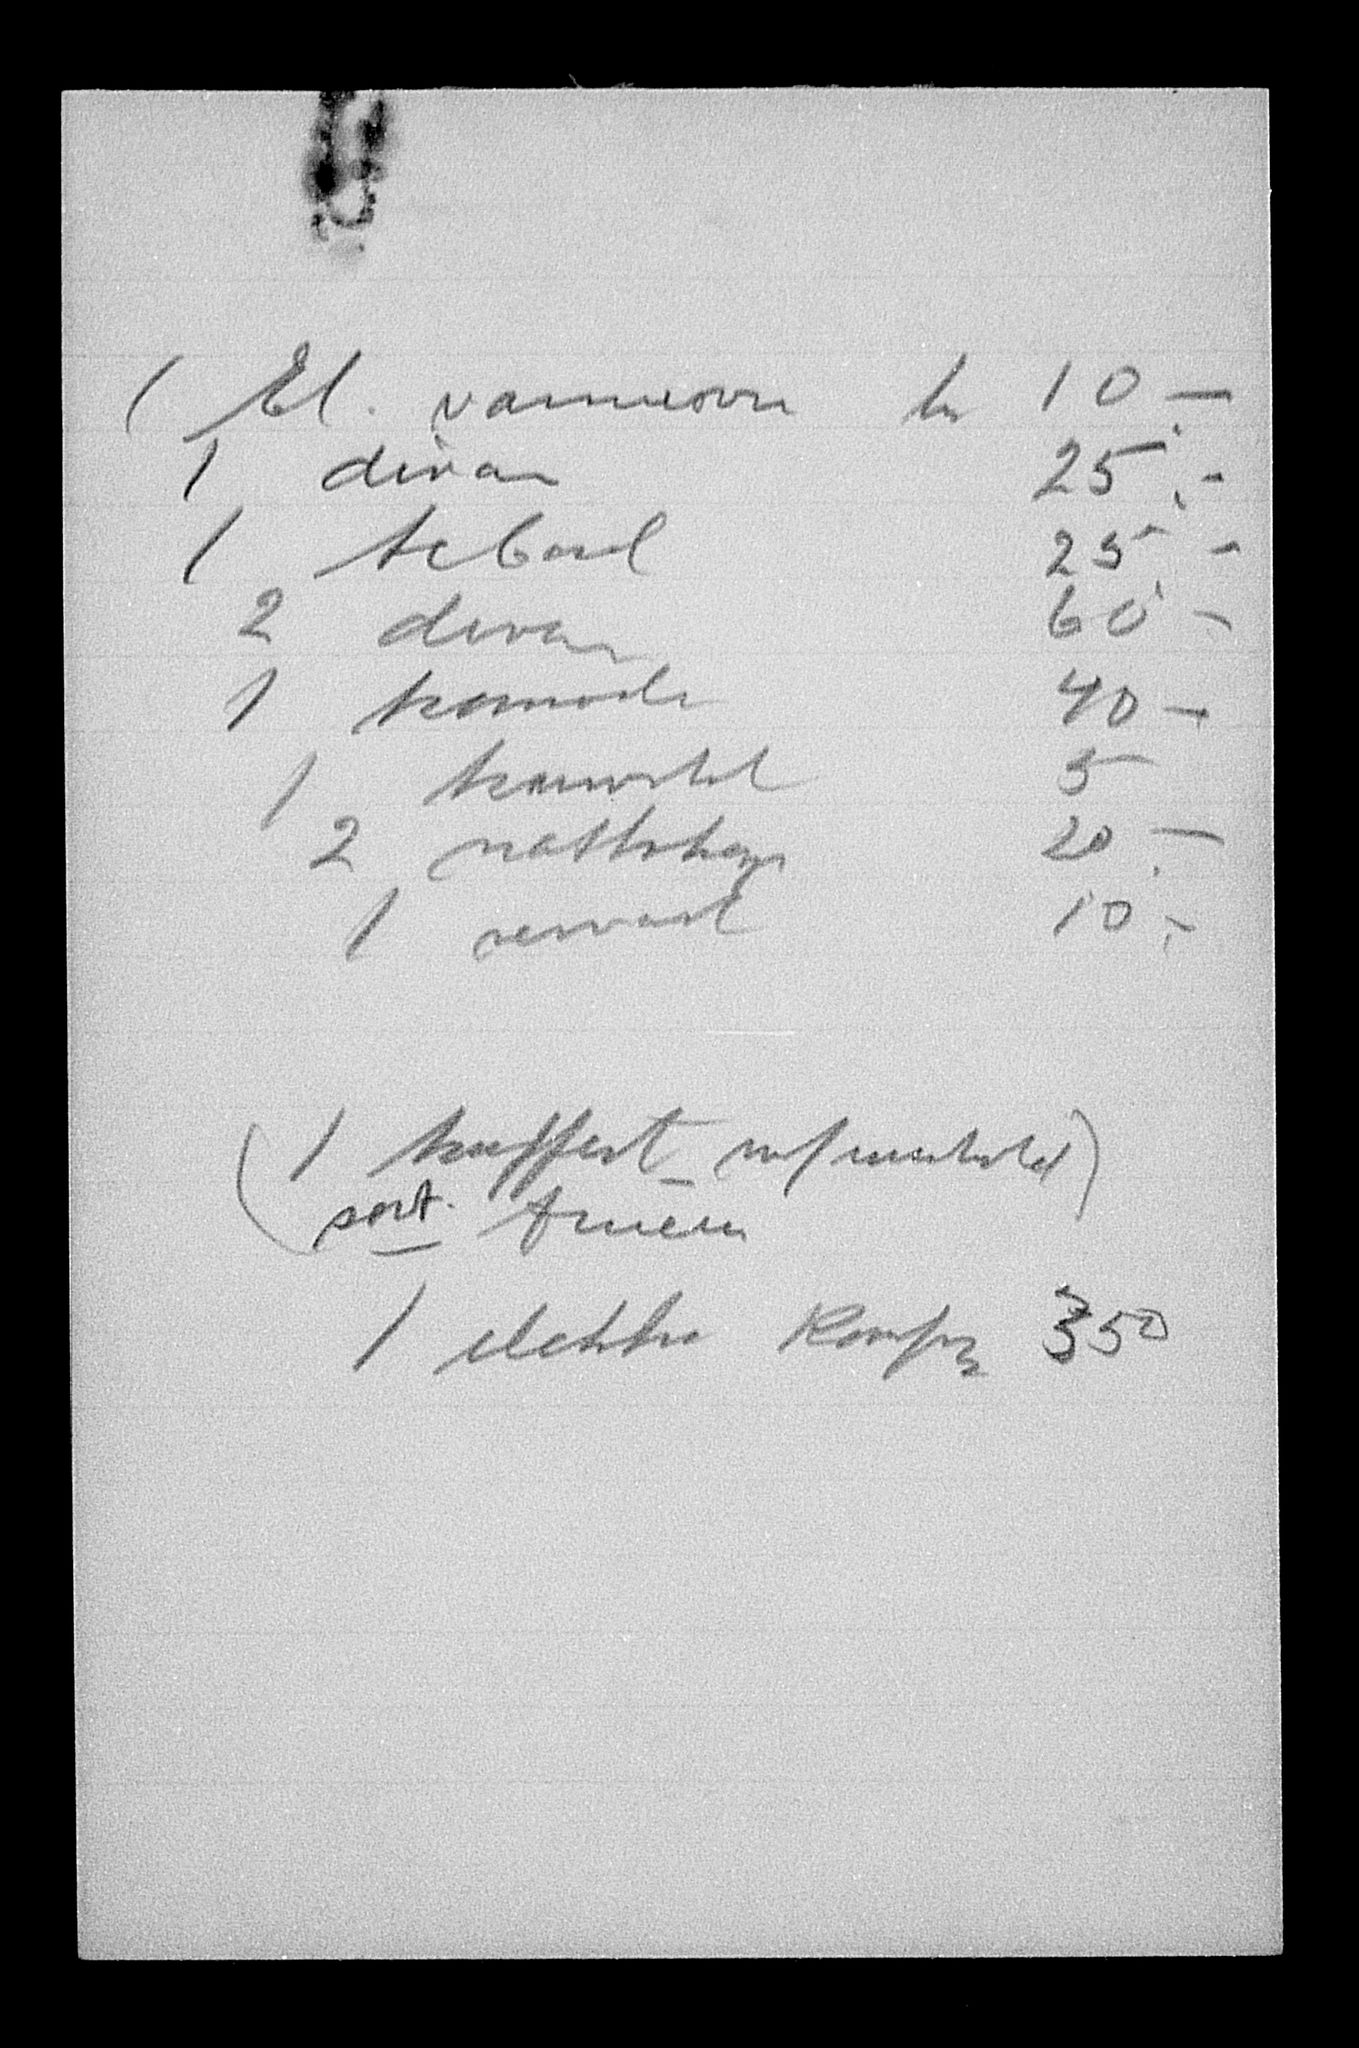 1 El. varmeovn kr 10.-
1 divan 25.-
1 tebord 25.-
2 divan 60.-
1 komode 40.-
1 kurvstol 5
2 nattskap 20.-
1 servant 10.-
(1 kuffert m/innhold)
sort.
1 elektr. Komfyr 350